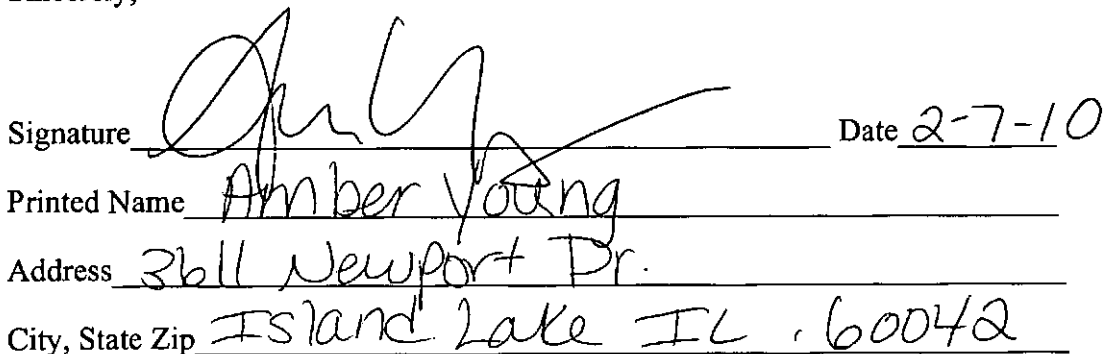 Signature Date 2-7-10
Printed Name Amber Young
Address 3611 Newport Dr.
City, State Zip Island Lake IL . 60042